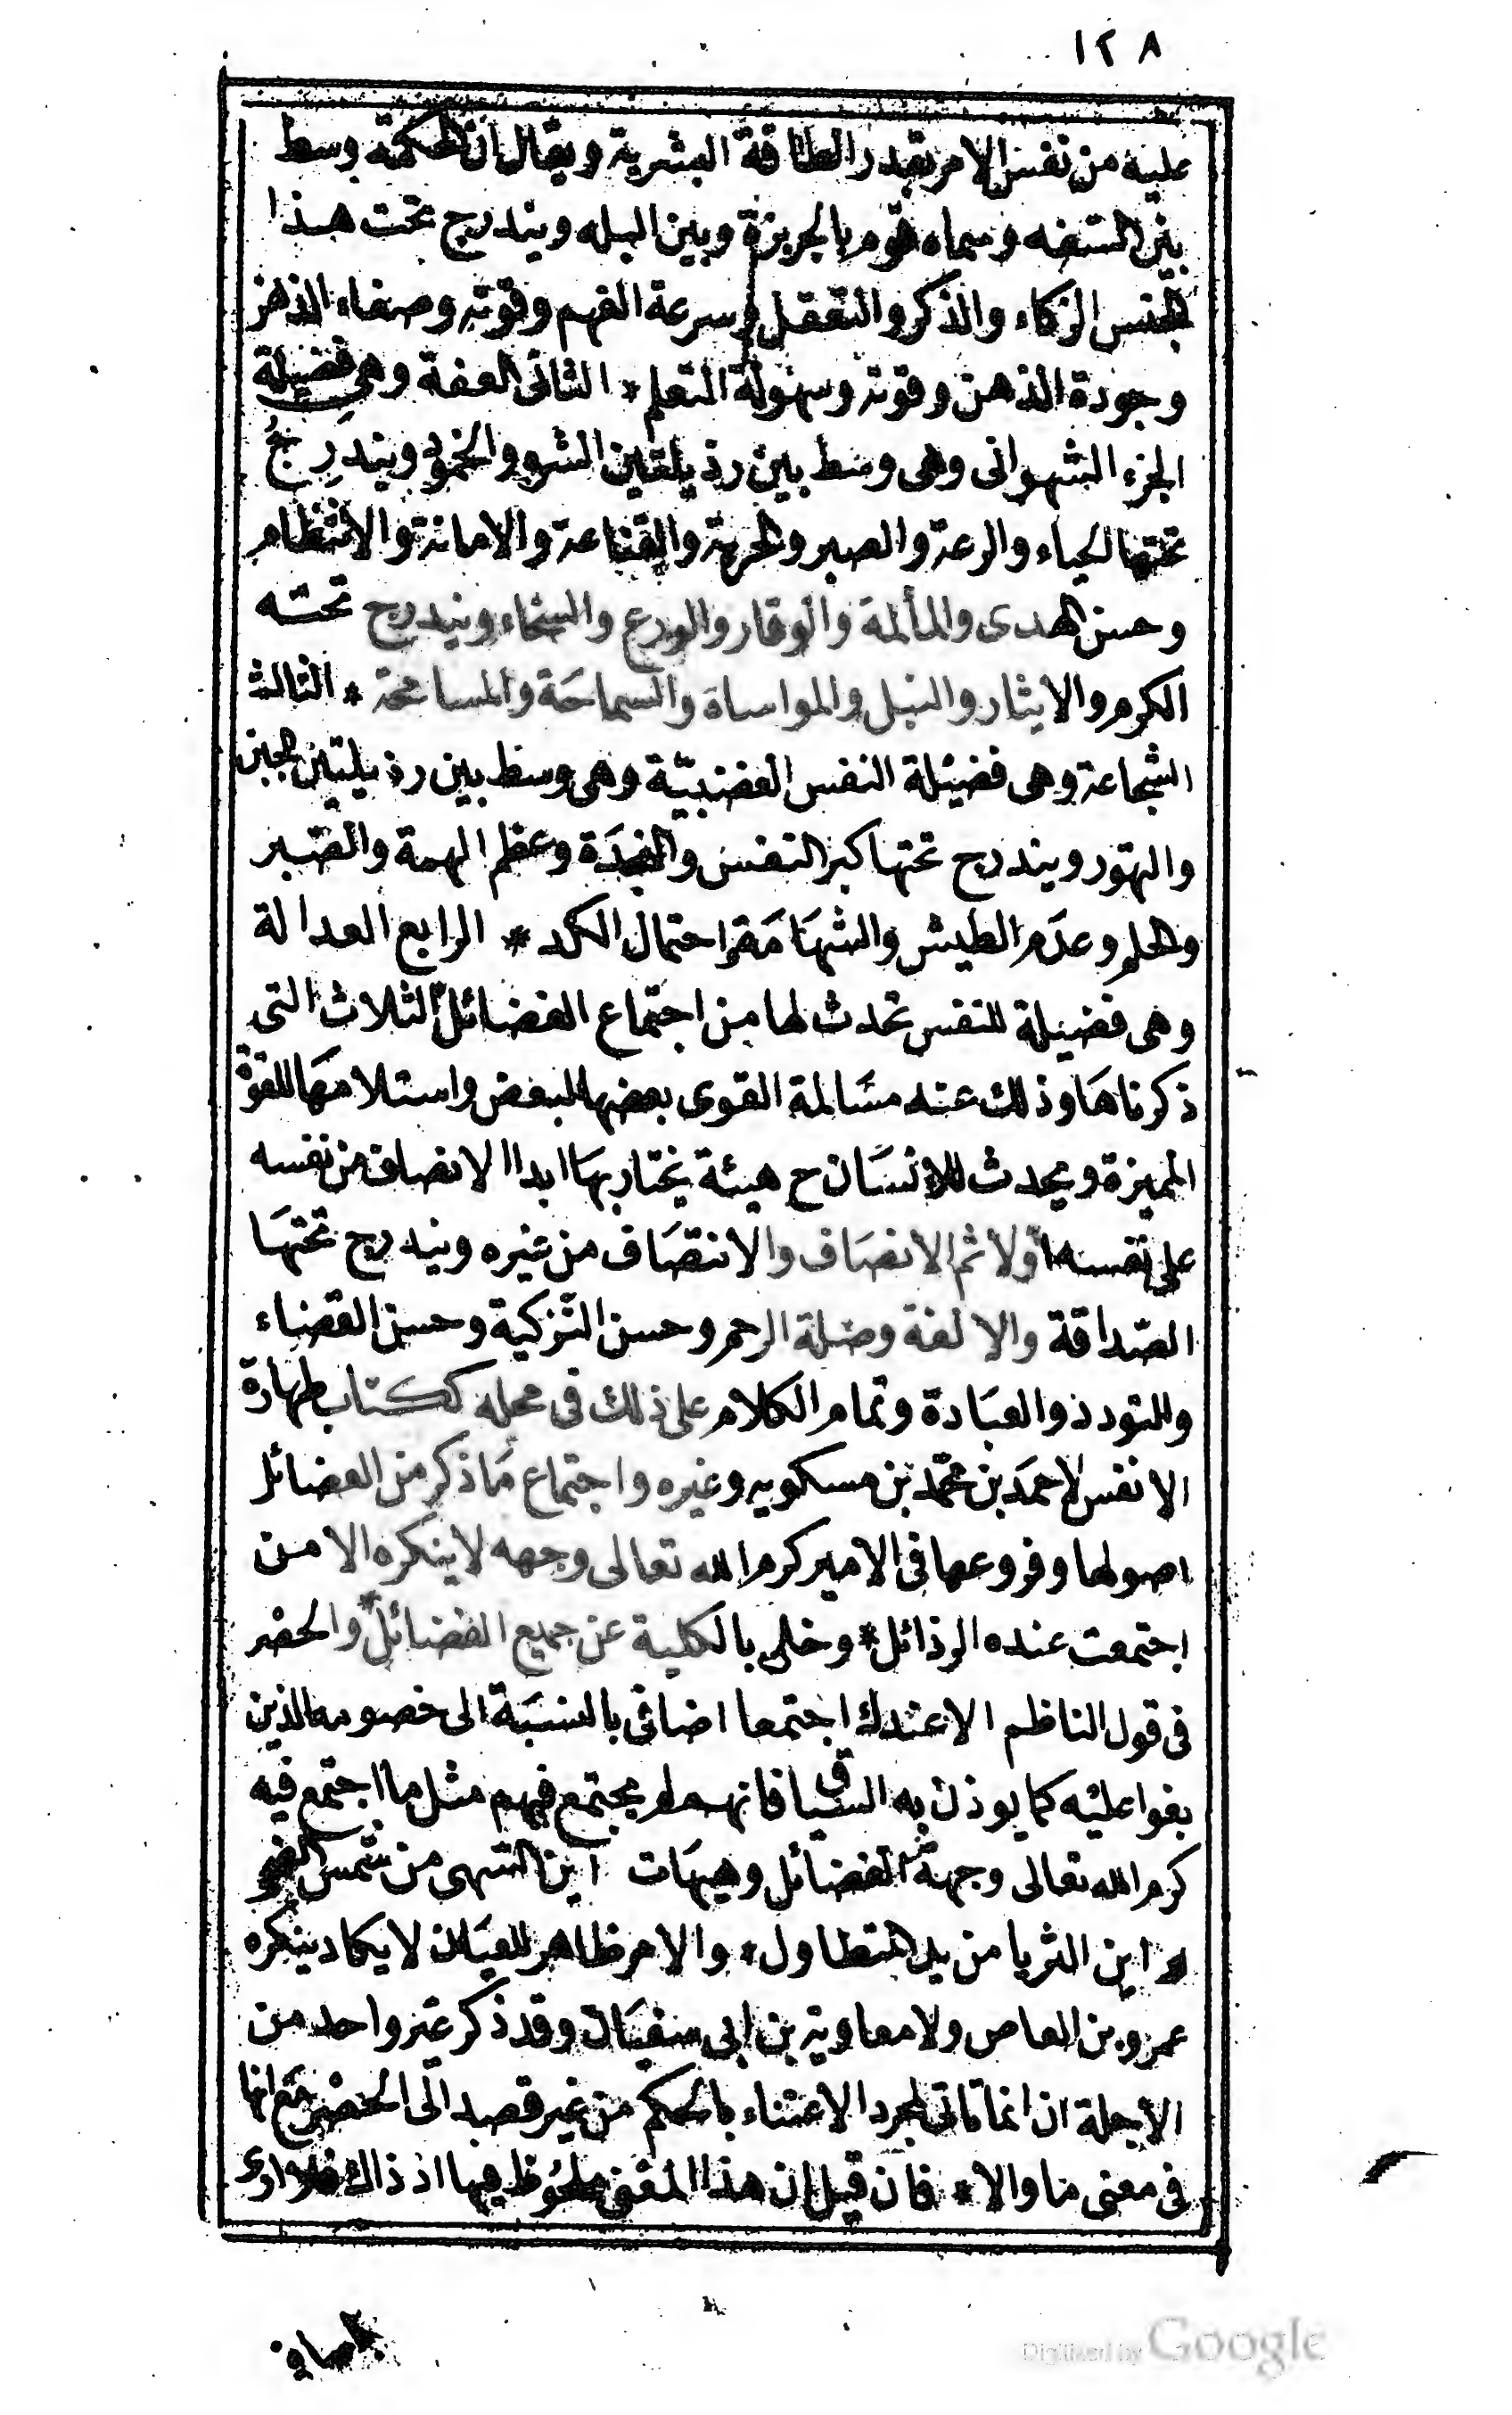 ١٢٨
عليه من نفس الامر بقدر الطاقة البشرية ويقال ان الحكمة وسط
بين السفه وسماه قوم بالجربزة وبين البله ويندرج تحت هذا
الجنس الزكاء والذكر والتعقل وسرعة الفهم وقوته وصفاء الذهن
وجودة الذهن وقوته وسهولة التعلم * الثانى العفة وهى فضيلة
الجزء الشهوانى وهى وسط بين رذيلتين الشره والخمود ويندرج
تحتها الحياء والدعة والصبر والحرية والقناعة والامانة والانتظام
وحسن الهدى والمسالمة والوقار والورع والسخاء ويندرج تحته
الكرم والايثار والنبل والمواساة والسماحة والمسامحة * الثالث
الشجاعة وهى فضيلة النفس الغضبية وهى وسط بين رذيلتين الجبن
والتهور ويندرج تحتها كبر النفس والنجدة وعظم الهمة والصبر
والحلم وعدم الطيش والشهامة واحتمال الكد * الرابع العدالة
وهى فضيلة للنفس تحدث لها من اجتماع الفضائل الثلاث التى
ذكرناها وذلك عند مسالمة القوى بعضها لبعض واستلامها للقوة
المميزة ويحدث للانسان ح هيئة يختار بها ابدا الانصاف من نفسه
على نفسه اولا ثم الانصاف والانتصاف من غيره ويندرج تحتها
الصداقة والالفة وصلة الرحم وحسن التزكية وحسن القضاء
والتودد والعبادة وتمام الكلام على ذلك فى محله ككتاب طهارة
الانفس لاحمد بن محمد بن مسكويه وغيره واجتماع ما ذكر من الفضائل
اصولها وفروعها فى الامير كرم الله تعالى وجهه لا ينكره الا من
اجتمعت عنده الرذائل * وخلى بالكلية عن جميع الفضائل * والحصر
فى قول الناظم الا عندك اجتمعا اضافى بالنسبة الى خصومه الذين
بغوا عليه كما يوذن به السياق فانهم لم يجتمع فيهم مثل ما اجتمع فيه
كرم الله تعالى وجهه من الفضائل وهيهات اين السهى من شمس الضحى
* واين الثريا من يد المتطاول * والامر ظاهر للعيان لا يكاد ينكره
عمرو بن العاص ولا معاوية بن ابى سفيان وقد ذكر غير واحد من
الاجلة ان انما تاتى لمجرد الاعتناء بالحكم من غير قصد الى الحصر مع انها
فى معنى ما والا * فان قيل ان هذا المعنى ملحوظ فيها اذ ذاك
Digitized by Google